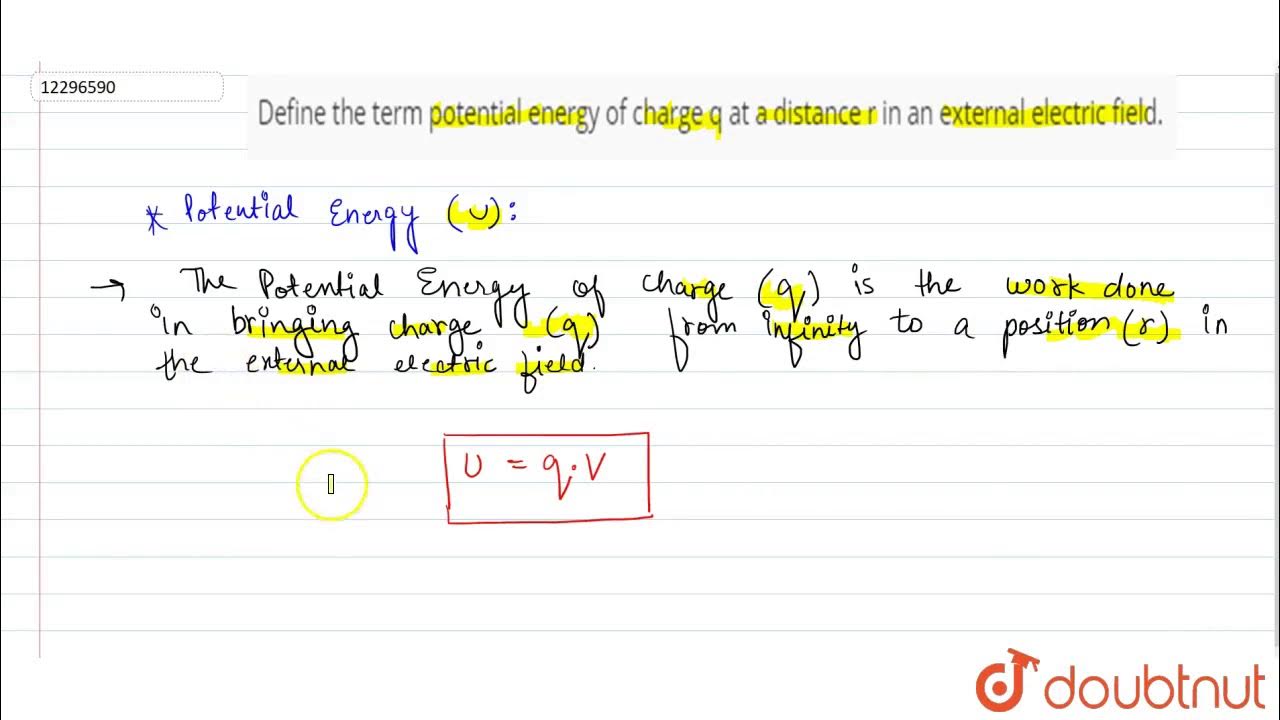 12296590
Define the term potential energy of charge q at a distance r in an external electric field.
* Potential Energy (U):
→ The Potential Energy of charge (q) is the work done
in bringing charge (q) from infinity to a position (r) in
the external electric field.
U = q.V
doubtnut